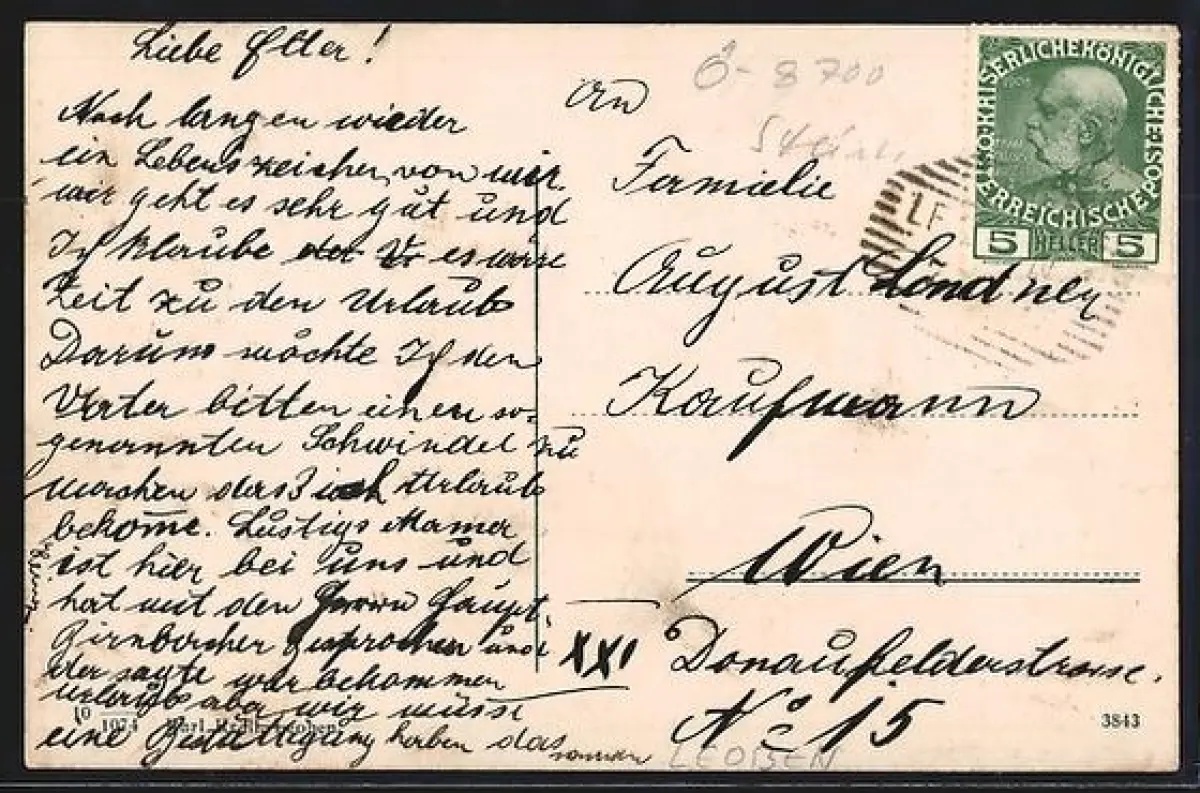 Liebe Elter!
Nach langen wieder
ein Lebenszeichen von mir.
mir geht es sehr gut und
Ich klaube es wäre
Zeit zu den Urlaub
Darum möchte Ich den
Vater bitten einen so-
genannten Schwindel zu
machen daß ich Urlaub
bekome. Lustigs Mama
ist hier bei uns und
hat mit den Herrn Haupt.
Birnbacher gesprochen und
der sagte wir bekommen
Urlaub aber wir müsse
eine Bestättigung haben das
10
1074 Karl
Ö-8700
An
Familie
August Lindney
Kaufmann
Wien
XXI Donaufelderstrasse.
No 15
LEOBEN
3843
KAISERLICHEKÖNIGLICHE
ÖSTERREICHISCHE POST
5 HELLER 5
LE